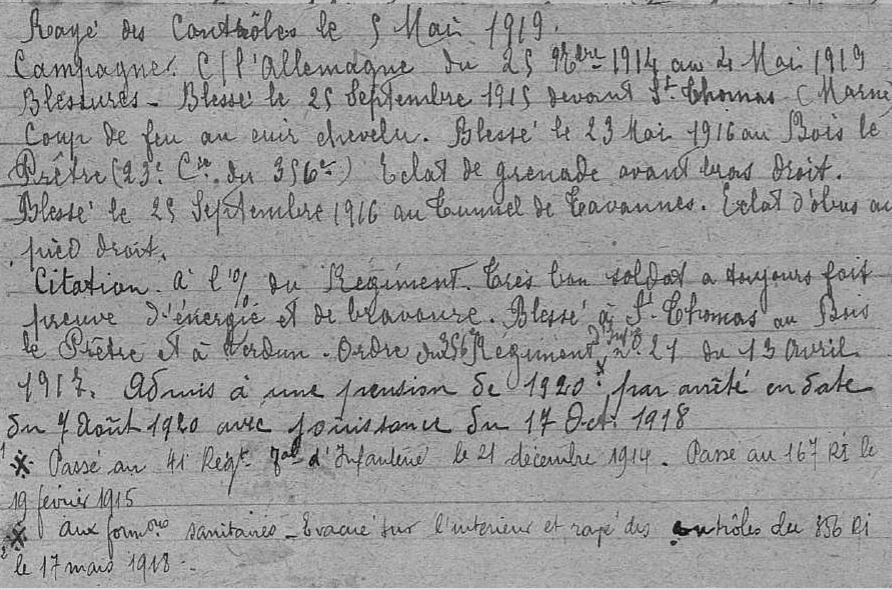 Rayé des Contrôles le 5 Mai 1919.
Campagnes. C/ l'Allemagne du 25 9bre 1914 au 4 Mai 1919
Blessures - Blessé le 25 Septembre 1915 devant St. Thomas (Marne
Coup de feu au cuir chevelu. Blessé le 23 Mai 1916 au Bois le
Prêtre (23e Cie du 356e) Eclat de grenade avant bras droit.
Blessé le 25 Septembre 1916 au Tunnel de Tavannes. Eclat d'obus au
pied droit.
Citation. à l'o/ du Régiment. Très bon soldat a toujours fait
preuve d'énergie et de bravoure. Blessé à St. Thomas au Bois
le Prêtre et à Verdun. Ordre du 356e Régiment d'Infie no 21 du 13 Avril
1917. Admis à une pension de 1920 f par arrêté en date
du 7 Août 1920 avec jouissance du 17 Oct. 1918
1 Passé au 41 Régt d'Infanterie le 21 décembre 1914. Passé au 167 RI le
19 février 1915
2 aux formons sanitaires - Evacué sur l'intérieur et rayé des contrôles du 356 RI
le 17 mars 1918.